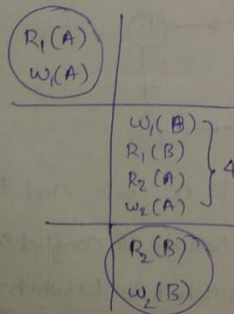 R₁(A)
W₁(A)
W₁(B)
R₁(B)
R₂(A)
W₂(A)
4
R₂(B)
W₂(B)